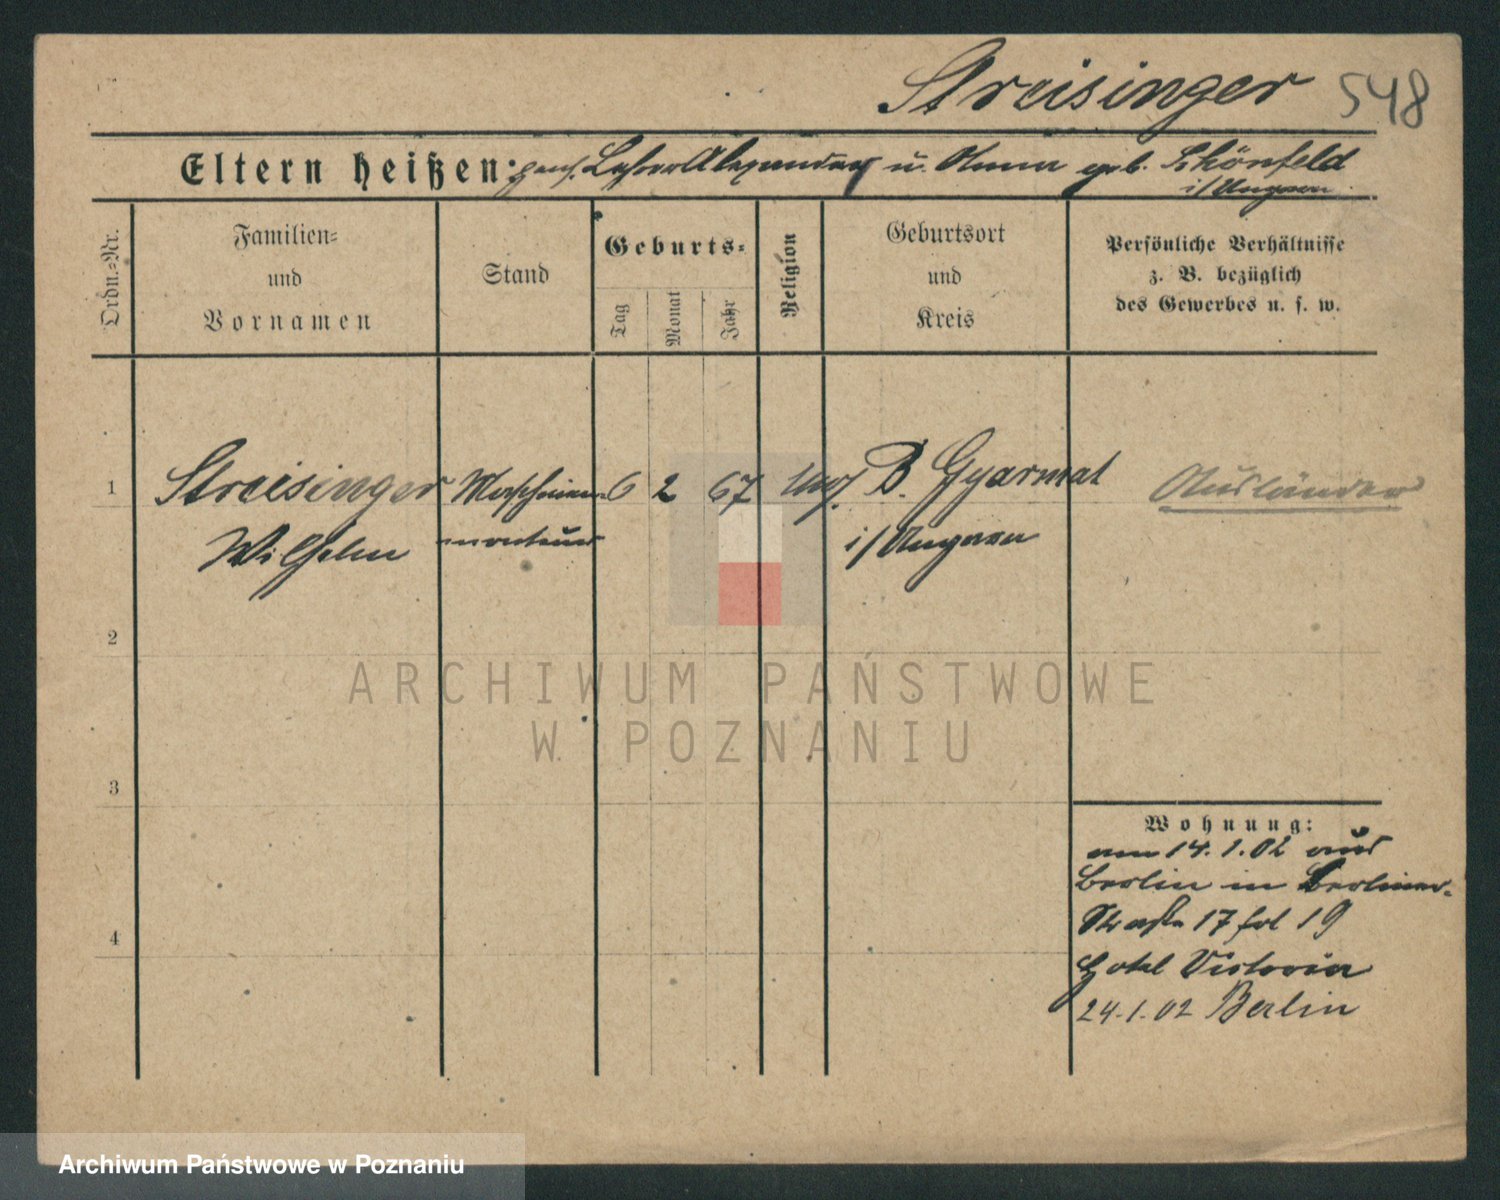 Streisinger 548
Eltern heißen: pens. Lehrer Alexander u. Anna geb. Schönfeld
i/Ungarn
Ordn.-Nr.
Familien-
und
Vornamen
Stand
Geburts-
Tag
Monat
Jahr
Religion
Geburtsort
und
Kreis
Persönliche Verhältnisse
z. B. bezüglich
des Gewerbes u. s. w.
1 Streisinger Maschinen- 6 2 67 B. Gyarmat Ausländer
Wilhelm monteur i/Ungarn
2
ARCHIWUM PAŃSTWOWE
W POZNANIU
3
Wohnung:
am 14.1.02 aus
Berlin in Berliner-
Straße 17 fol 19
4
Hotel Victoria
24.1.02 Berlin
Archiwum Państwowe w Poznaniu